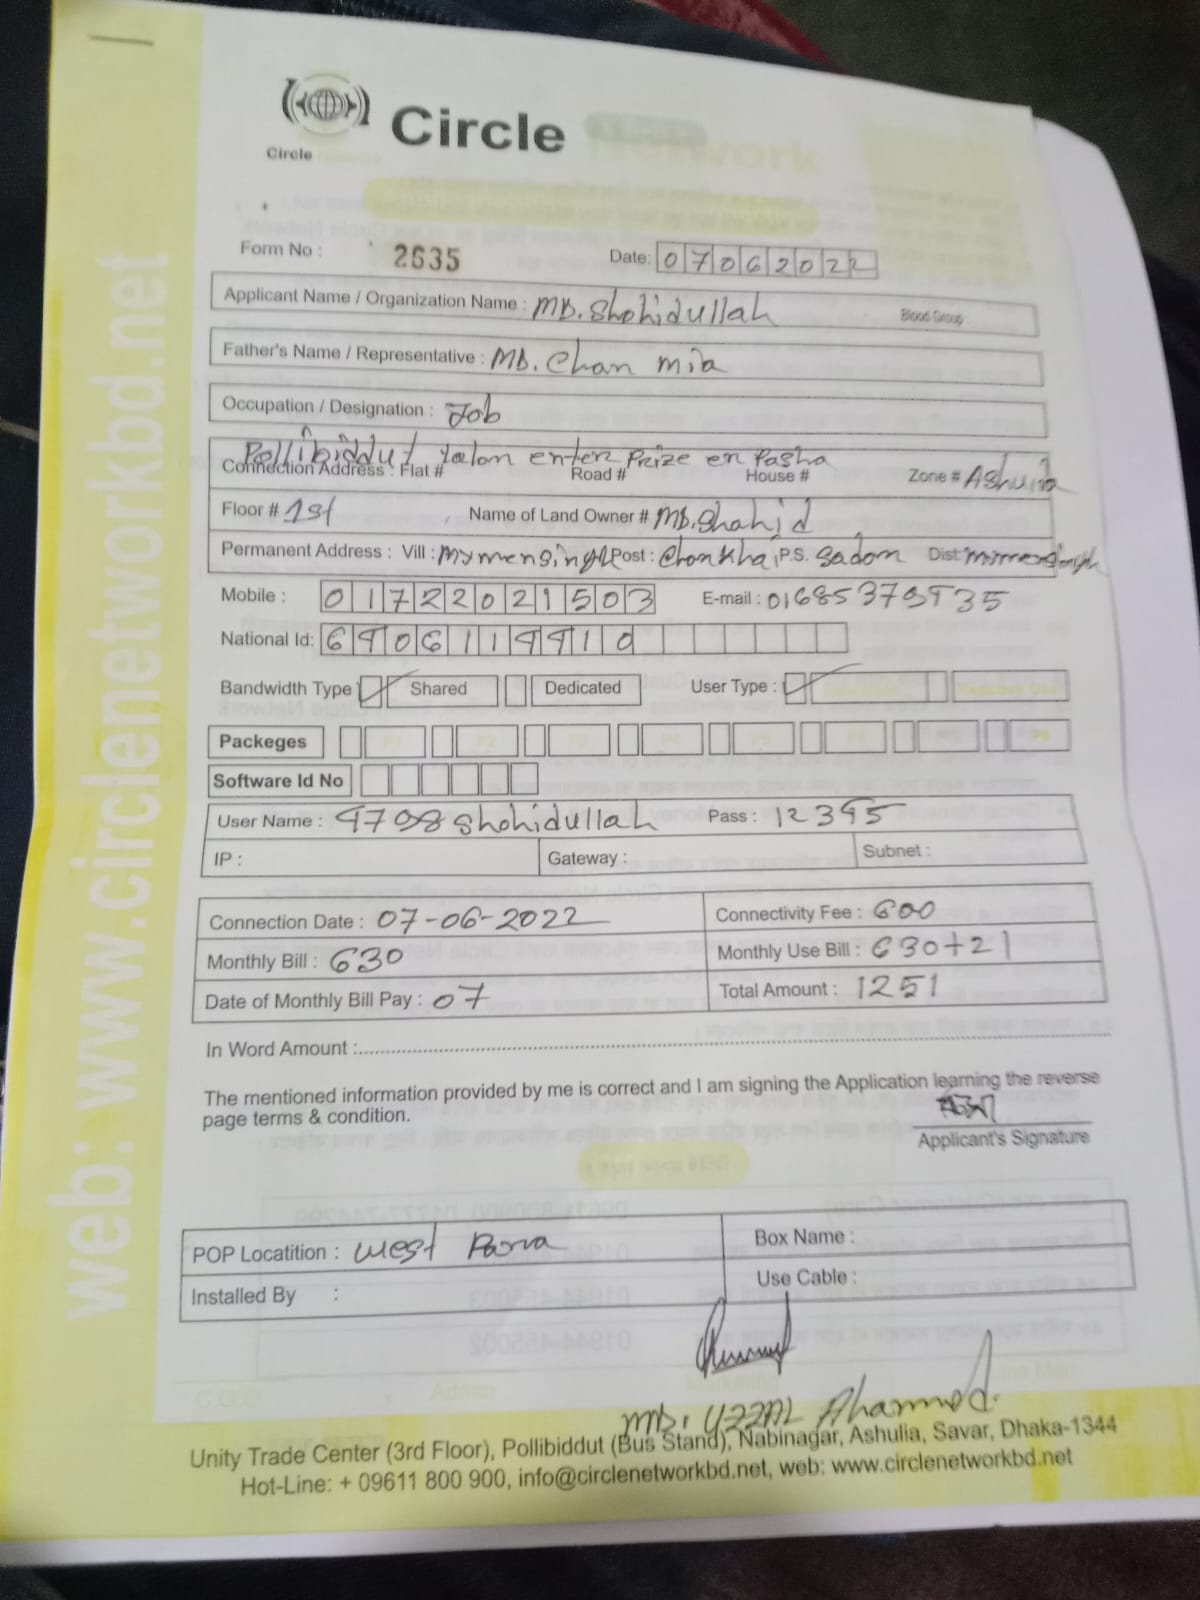 Circle
Circle
Form No : 2635 Date: 07062022
Applicant Name / Organization Name : MD. Shohidullah Blood Group :
Father's Name / Representative : MD. Chan Mia
Occupation / Designation : Job
Pollibiddut talom enter Prize en Pasha
Connection Address : Flat # Road # House # Zone # Ashulia
Floor # 1st Name of Land Owner # MD. Shahid
Permanent Address : Vill : Mymensingh Post : Chankhai P.S. Sadom Dist: Mymensingh
Mobile : 01722021503 E-mail : 01685379935
National Id: 6906119910
Bandwidth Type Shared Dedicated User Type :
Packeges P1 P2 P3 P4 P5 P8
Software Id No
User Name : 9798shohidullah Pass : 12345
IP : Gateway : Subnet :
Connection Date : 07-06-2022 Connectivity Fee : 600
Monthly Bill : 630 Monthly Use Bill : 630+21
Date of Monthly Bill Pay : 07 Total Amount : 1251
In Word Amount :
The mentioned information provided by me is correct and I am signing the Application learning the reverse
page terms & condition.
Applicant's Signature
POP Locatition : West Para Box Name :
Installed By : Use Cable :
MD. UZZAL Ahammed.
Unity Trade Center (3rd Floor), Pollibiddut (Bus Stand), Nabinagar, Ashulia, Savar, Dhaka-1344
Hot-Line: + 09611 800 900, info@circlenetworkbd.net, web: www.circlenetworkbd.net
web: www.circlenetworkbd.net